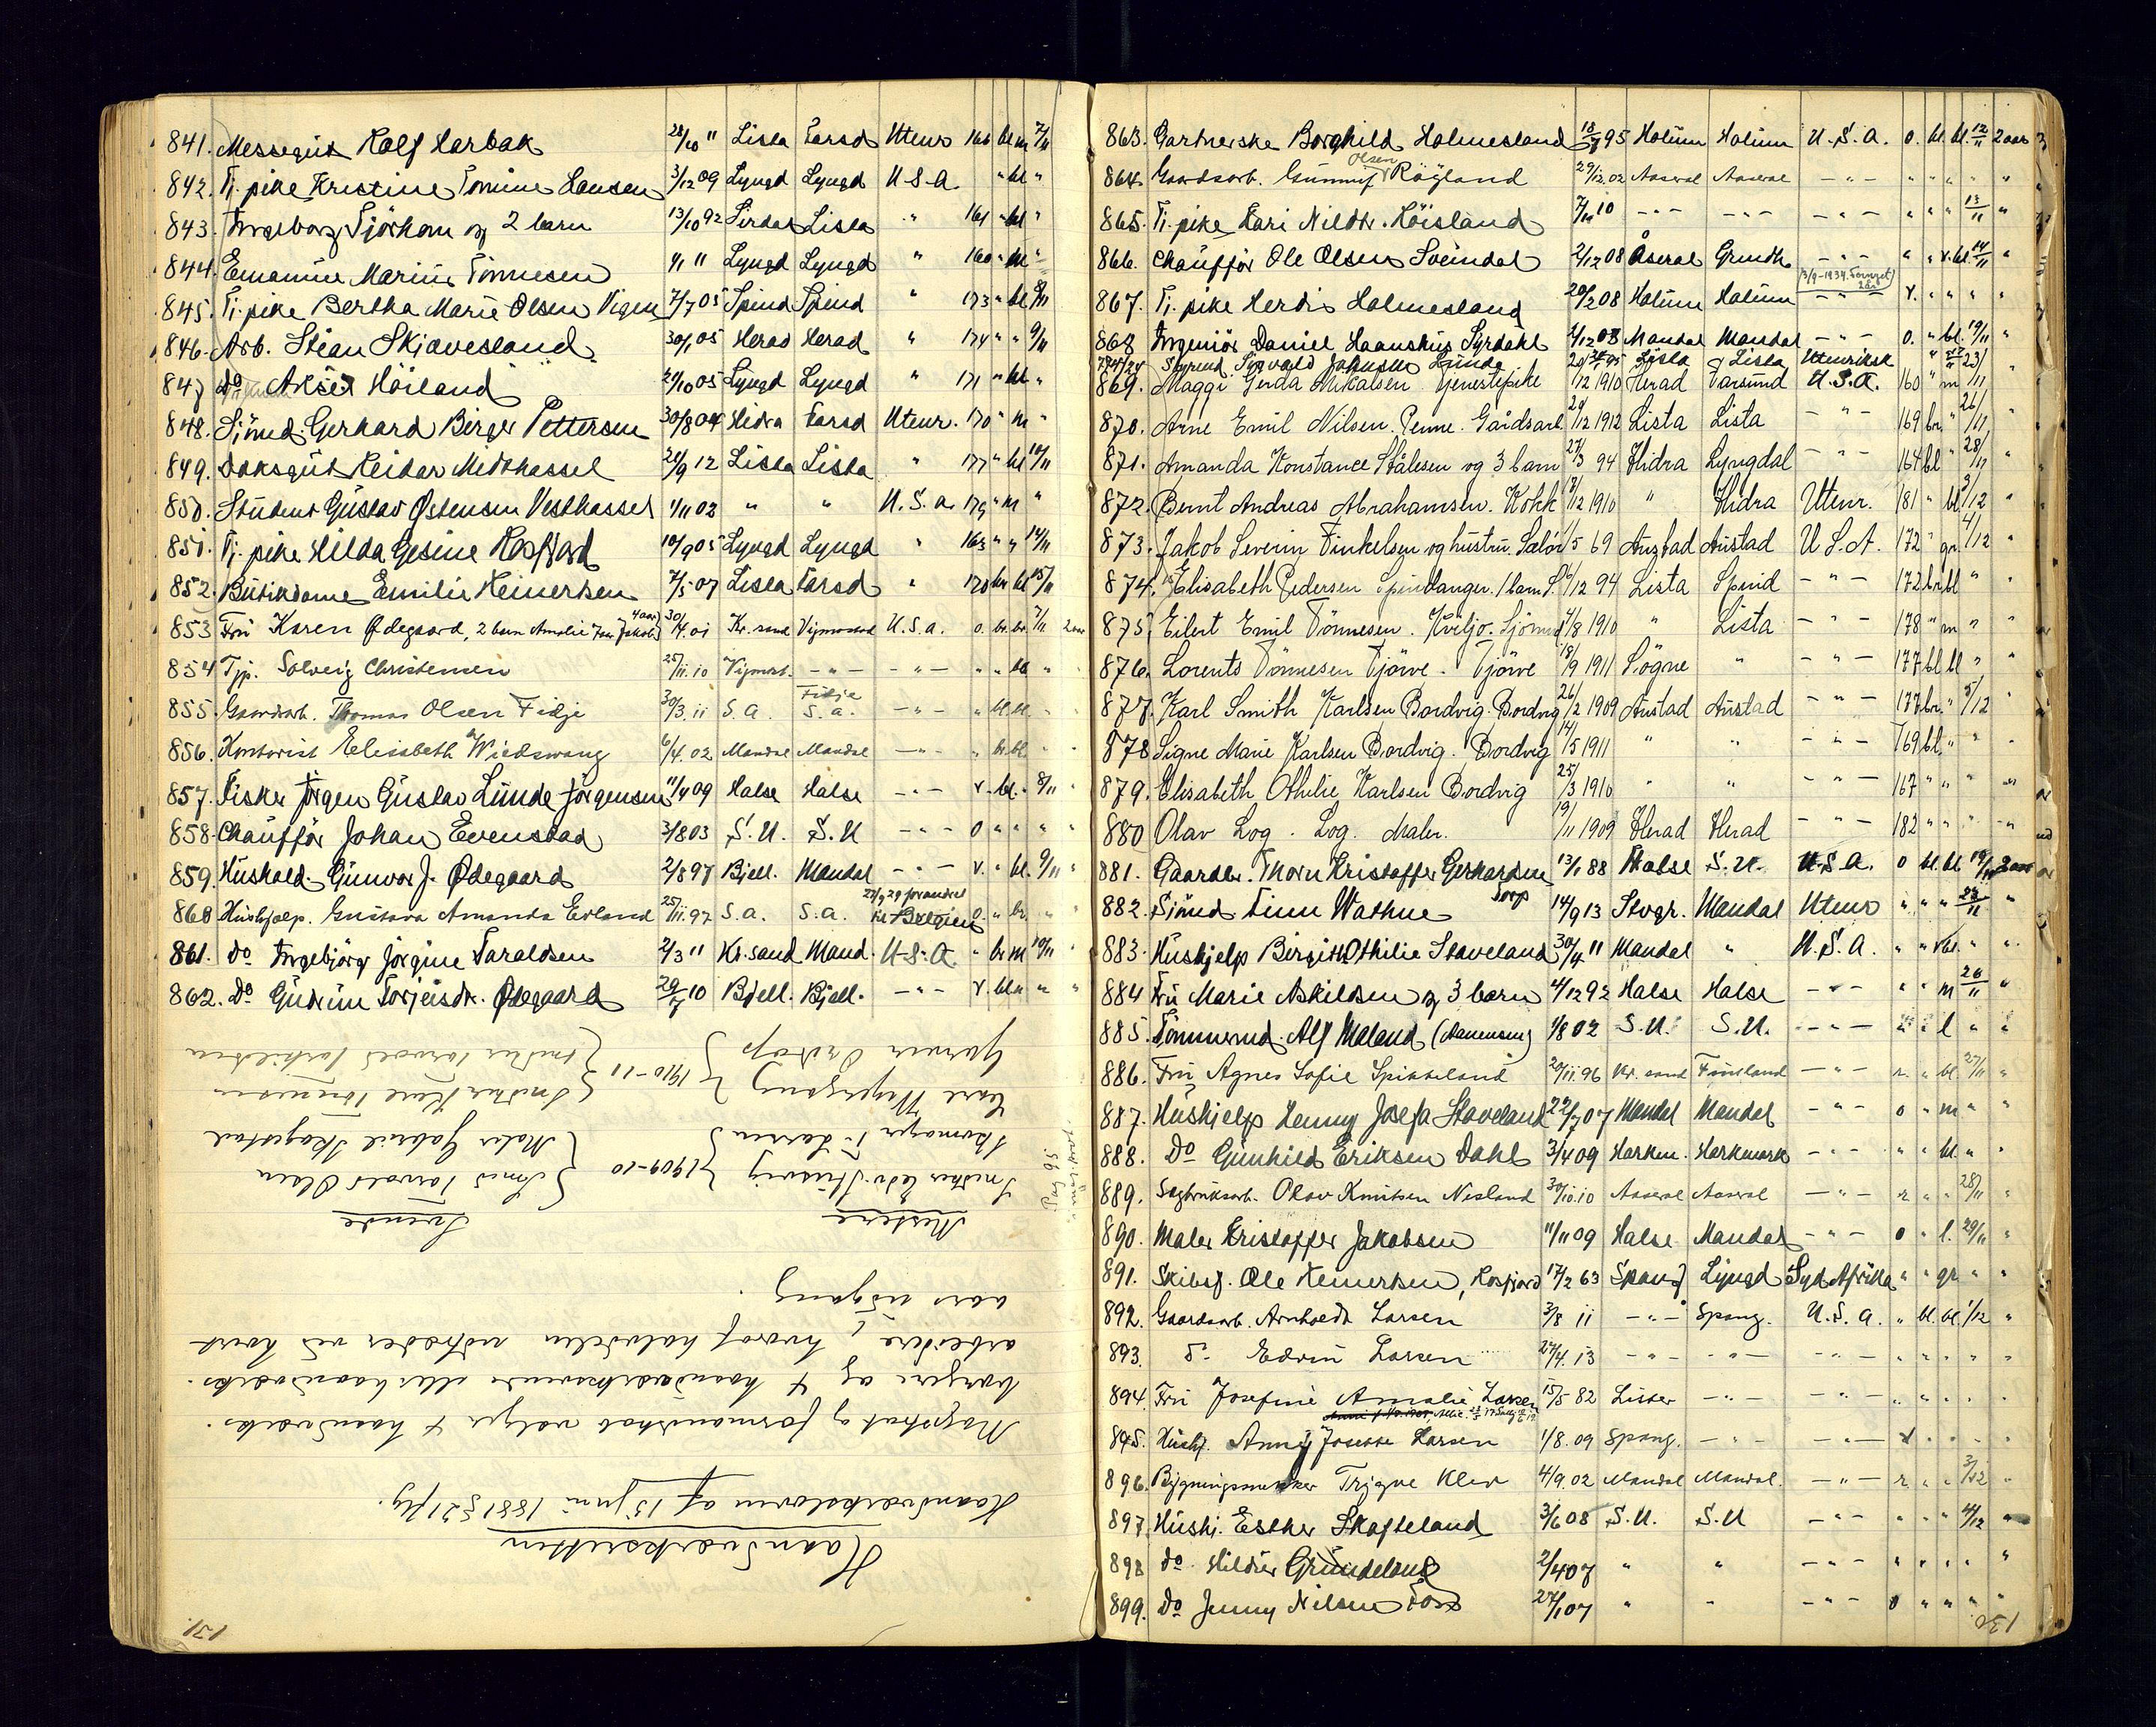 841. Messegut Rolf Harbak 28/10 11 Lista Farsd Utenr 166 bl m 7/11
842. Tj. pike Kristine Tomine Hansen 3/12 09 Lyngd Lyngd U.S.A. " bl "
843. Ingeborg Fjörhom og 2 barn 13/10 92 Sirdal Lista " 161 " bl "
844. Emanuel Marius Tönnesen 1/1 11 Lyngd Lyngd " 160 " bl "
845. Tj. pike Bertha Marie Olsen Vigen 7/7 05 Spind Spind " 173 " bl 8/11
846. Arb. Stian Skjævesland 30/1 05 Herad Herad " 174 " " 9/11
847 Do Aksel Höiland 21/10 05 Lyngd Lyngd " 171 " bl "
848. Sjömd. Gerhard Birger Pettersen 30/8 04 Hidra Farsd Utenr. 170 " m "
849. Daksgut Reidar Midthassel 24/9 12 Lista Lista " 177 " bl 12/11
850. Student Gustav Østensen Vesthassel 1/11 02 " " U.S.a. 179 " m "
851. Tj. pike Hilda Gesine Rosfjord 10/9 05 Lyngd Lyngd " 163 " " 14/11
852. Butikdame Emilie Reinertsen 7/5 07 Lista Farsd " 170 br bl 15/11
853 Fru Karen Ødegaard, 2 barn Amalie 7 aar Jakob 4 aar 30/4. 01 Kr. sand Vigmostad U.S.a. o. br. br. 7/11 2 aar
854 Tjp. Solveig Christensen 25/11. 10 Vigmost. - " - - " - " " bl. "
855. Gaardsarb. Thomas Olsen Filje 30/3. 11 S.a. Filje S.a. - " - " bl. bl. "
856. Kontorist Elisabeth Wiedswang 6/4. 02 Mandal Mandal - " - " br. bl. "
857. Fisker Jörgen Gustav Lunde Jörgensen 11/4 09 Halse Halse - " - r. bl. " 8/11 "
858. Chauffør Johan Evenstad 3/8 03 S.U. S.U - " - o " " " "
859. Hushold. Gunvor J. Ødegaard 2/8 97 Bjell. Mandal - " - r. " bl. 9/11 "
860 Hushjælp. Gustava Amanda Erland 25/11. 97 S.a. S.a. 27/9 29 forandret til Belgien o. " br. " "
861. Do Ingebjörg Jörgine Taraldsen 2/3 11 Kr. sand Mand. U.S.A. " br m 10/11 "
862. Do Gudrun Torjeisdr. Ødegaard 29/7 10 Bjell. Bjell. - " - r. bl " " "
Haandværksretten
Haandværksloven af 15 juni 1881 § 21 flg.
Magistrat og formandskab vælger 4 haandværks-
borgere og 4 haandværkssvende eller haandværks-
arbeidere, hvoraf halvdelen udtræder ved hvert
aars udgang.
Mestere Svende
Snedker Edv. Husvig } 1909-10 { Smed Torvald Olsen
Skomager T. Larsen { Maler Gabriel Skagestad
Carl Weyergang } 1910-11 { Snedker Karl Tönnesen
Garver Orstrop { Snedker Torvald Torkildsen
131.
863. Gartnerske Borghild Holmesland 18/8 95 Holum Holum U.S.A. o. bl. bl. 12/11 2 aar
864. Gaardsarb. Gunnuf Olsen Röyland 29/12. 02 Aaseral Aaseral - " - " " " " "
865. Tj. pike Kari Nildtr. Röisland 7/11 10 - " - - " - - " - " " " 13/11 "
866. Chauffør Ole Olsen Sveindal 2/12 08 Åseral Grindh. - " - " " v. bl. 14/11 "
867. Tj. pike Herdis Holmesland 20/2 08 Holum Holum (3/9-1934. Fornyet 2 aar) - " - r. " " " "
868 Ingeniör Daniel Haanshus Syrdahl 2/12 08 Mandal Mandal - " - o. " bl. 19/11 "
Sigvald Johnsen Lunde Lista Lista Utenriks " 23/
869. Maggi Gerda Mikalsen Genestepike /12 1910 Herad Farsund U.S.A. 160 " m /11 "
870. Arne Emil Nilsen. Penne. Gårdsarb. 29/12 1912 Lista Lista - " - 169 br. " 26/11 "
871. Amanda Konstance Stålesen og 3 barn 27/3 94 Hidra Lyngdal - " - 164 bl " 28/11 "
872. Bernt Andreas Abrahamsen. Kokk 8/12 1910 " Hidra Utenr. 181 " bl 3/12 "
873. Jakob Severin Tinkelsen og hustru Salör 1/5 69 Austad Austad U.S.A. 172 " gr. 4/12 "
874. Elisabeth Pedersen Spindanger. 1 barn S. 6/12 94 Lista Spind - " - 172 br. bl " "
875. Eilert Emil Tönnesen. Kviljo. Sjömd 4/8 1910 " Lista - " - 178 " m " "
876. Lorents Tönnesen Tjörve. Tjörve 18/9 1911 Sögne " - " - 177 bl bl " "
877. Karl Smith Karlsen Bordvig. Bordvig 26/2 1909 Austad Austad - " - 177 br. " 5/12 "
878 Signe Marie Karlsen Bordvig. Bordvig 14/5 1911 " " - " - 169 bl. " " "
879. Elisabeth Othilie Karlsen Bordvig 25/3 1910 " " - " - 167 " " " "
880 Olav Log. Log. Maler. 19/11 1909 Herad Herad - " - 182 " " " "
881. Gaardbr. Thorn Kristoffer Gerhardsen 13/1 88 Halse S.U. U.S.A. o bl. bl 19/11 2 aar
882. Sjömd Finn Wathne Torp 14/9 13 Stvgr. Mandal Utenr " " " 23/11 "
883. Hushjelp Birgith Othilie Staveland 30/4 11 Mandal " U.S.A. " " bl. " "
884 Fru Marie Askildsen og 3 barn 4/12 92 Halse Halse - " - " " m 26/11 "
885. Tömmermd. Alf Maland (Aanensen) 1/8 02 S.U. S.U. - " - r. " l " "
886. Fru Agnes Sofie Spikkeland 20/11. 96 Kr. sand Finsland - " - r. " bl. 27/11 "
887. Hushjelp Jenny Josefa Staveland 22/7 07 Mandal Mandal - " - o " m " "
888. Do Gunhild Eriksen Dahl 3/4 09 Harkm. Harkmark - " - " " bl. " "
889. Sagbruksarb. Olav Knutsen Nesland 30/10. 10 Aaseral Aaseral - " - r " " 28/11 "
890. Maler Kristoffer Jakobsen 11/11 09 Halse Mandal - " - o " l. 29/11 "
891. Skibsf. Ole Reinertsen, Rosfjord 17/2 63 Spang. Lyngd Syd Afrika " " gr " "
892. Gaardsarb. Arnholdt Larsen 3/8 11 - " - Spang. U.S.a. " bl. bl. 1/12 "
893. D- Edvin Larsen 24/4. 13 - " - - " - - " - " " " " "
894. Fru Josefine Amalie Larsen 15/5 82 Lister - " - - " - " " " " "
895. Hushj. Anny Josette Larsen 1/8. 09 Spang. - " - - " - r " " " "
896. Bygningssnekker Trygve Klev 4/9. 02 Mandal Mandal. - " - r. " " 3/12 "
897. Hushj. Esther Skofteland 3/6 08 S.U. S.U - " - " " " 4/12 "
898 do Hildur Grundeland 2/4 07 " " - " - " " " " "
899. Do Jenny Nilsen Foss 27/1 07 " " - " - o " " " "
130.